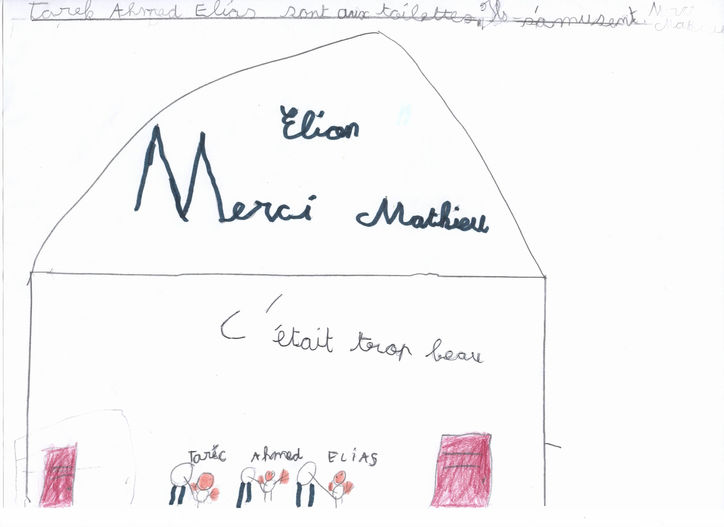 Tarek Ahmed Elias sont aux toilettes Ils s'amusent. Merci
Mathieu
Elian
Merci Mathieu
C'était trop beau
Taréc Ahmed ELIAS